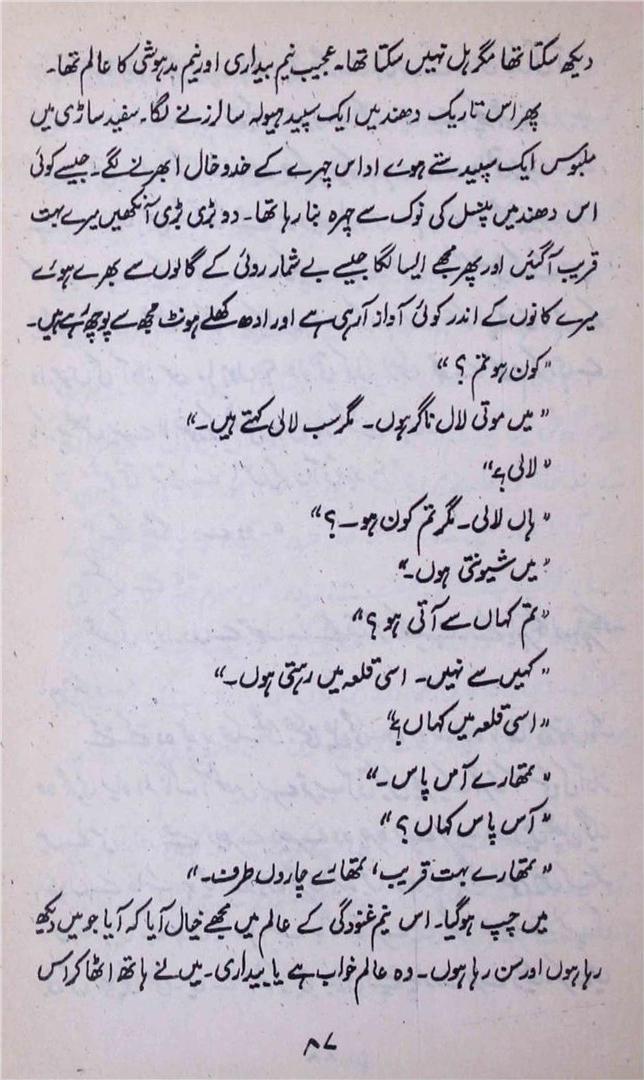 دیکھ سکتا تھا مگر ہل نہیں سکتا تھا۔ عجیب نیم بیداری اور نیم مدہوشی کا عالم تھا۔
پھر اس تاریک دھند میں ایک سپید ہیولہ سا لرزنے لگا۔ سفید ساڑی میں
ملبوس ایک سپید ستے ہوئے اداس چہرے کے خدوخال ابھرنے لگے۔ جیسے کوئی
اس دھند میں پنسل کی نوک سے چہرہ بنا رہا تھا۔ دو بڑی بڑی آنکھیں میرے بہت
قریب آگئیں اور پھر مجھے ایسا لگا جیسے بے شمار روئی کے گالوں سے بھرے ہوئے
میرے کانوں کے اندر کوئی آواز آرہی ہے اور ادھ کھلے ہونٹ مجھ سے پوچھ رہے ہیں۔
"کون ہو تم؟"
"میں موتی لال ناگر ہوں۔ مگر سب لالی کہتے ہیں۔"
"لالی؟"
"ہاں لالی۔ مگر تم کون ہو۔؟"
"میں شیونتی ہوں۔"
"تم کہاں سے آتی ہو؟"
"کہیں سے نہیں۔ اسی قلعہ میں رہتی ہوں۔"
"اسی قلعہ میں کہاں؟"
"تمھارے آس پاس۔"
"آس پاس کہاں؟"
"تمھارے بہت قریب، تمھارے چاروں طرف۔"
میں چپ ہوگیا۔ اس نیم غنودگی کے عالم میں مجھے خیال آیا کہ آیا جو میں دیکھ
رہا ہوں اور سن رہا ہوں۔ وہ عالم خواب ہے یا بیداری۔ میں نے ہاتھ اٹھا کر اس
۸۷